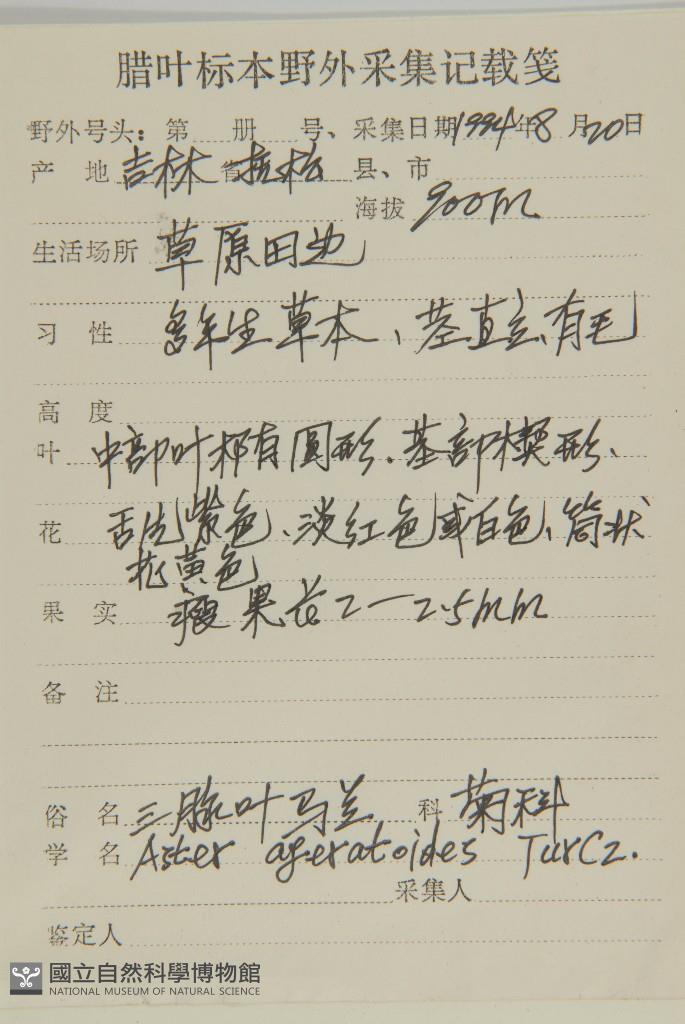 腊叶标本野外采集记载笺
野外号头：第 册 号、采集日期1994年8月20日
产 地 吉林省抚松县、市
海拔 900m
生活场所 草原田边
习 性 多年生草本、茎直立、有毛
高 度
叶 中部叶椭圆形、基部楔形、
花 舌片紫色、淡红色或白色、筒状
花黄色
果 实 瘦果长2—2.5mm
备 注
俗 名 三脉叶马兰 科 菊科
学 名 Aster ageratoides Turcz.
采集人
鉴定人
國立自然科學博物館
NATIONAL MUSEUM OF NATURAL SCIENCE